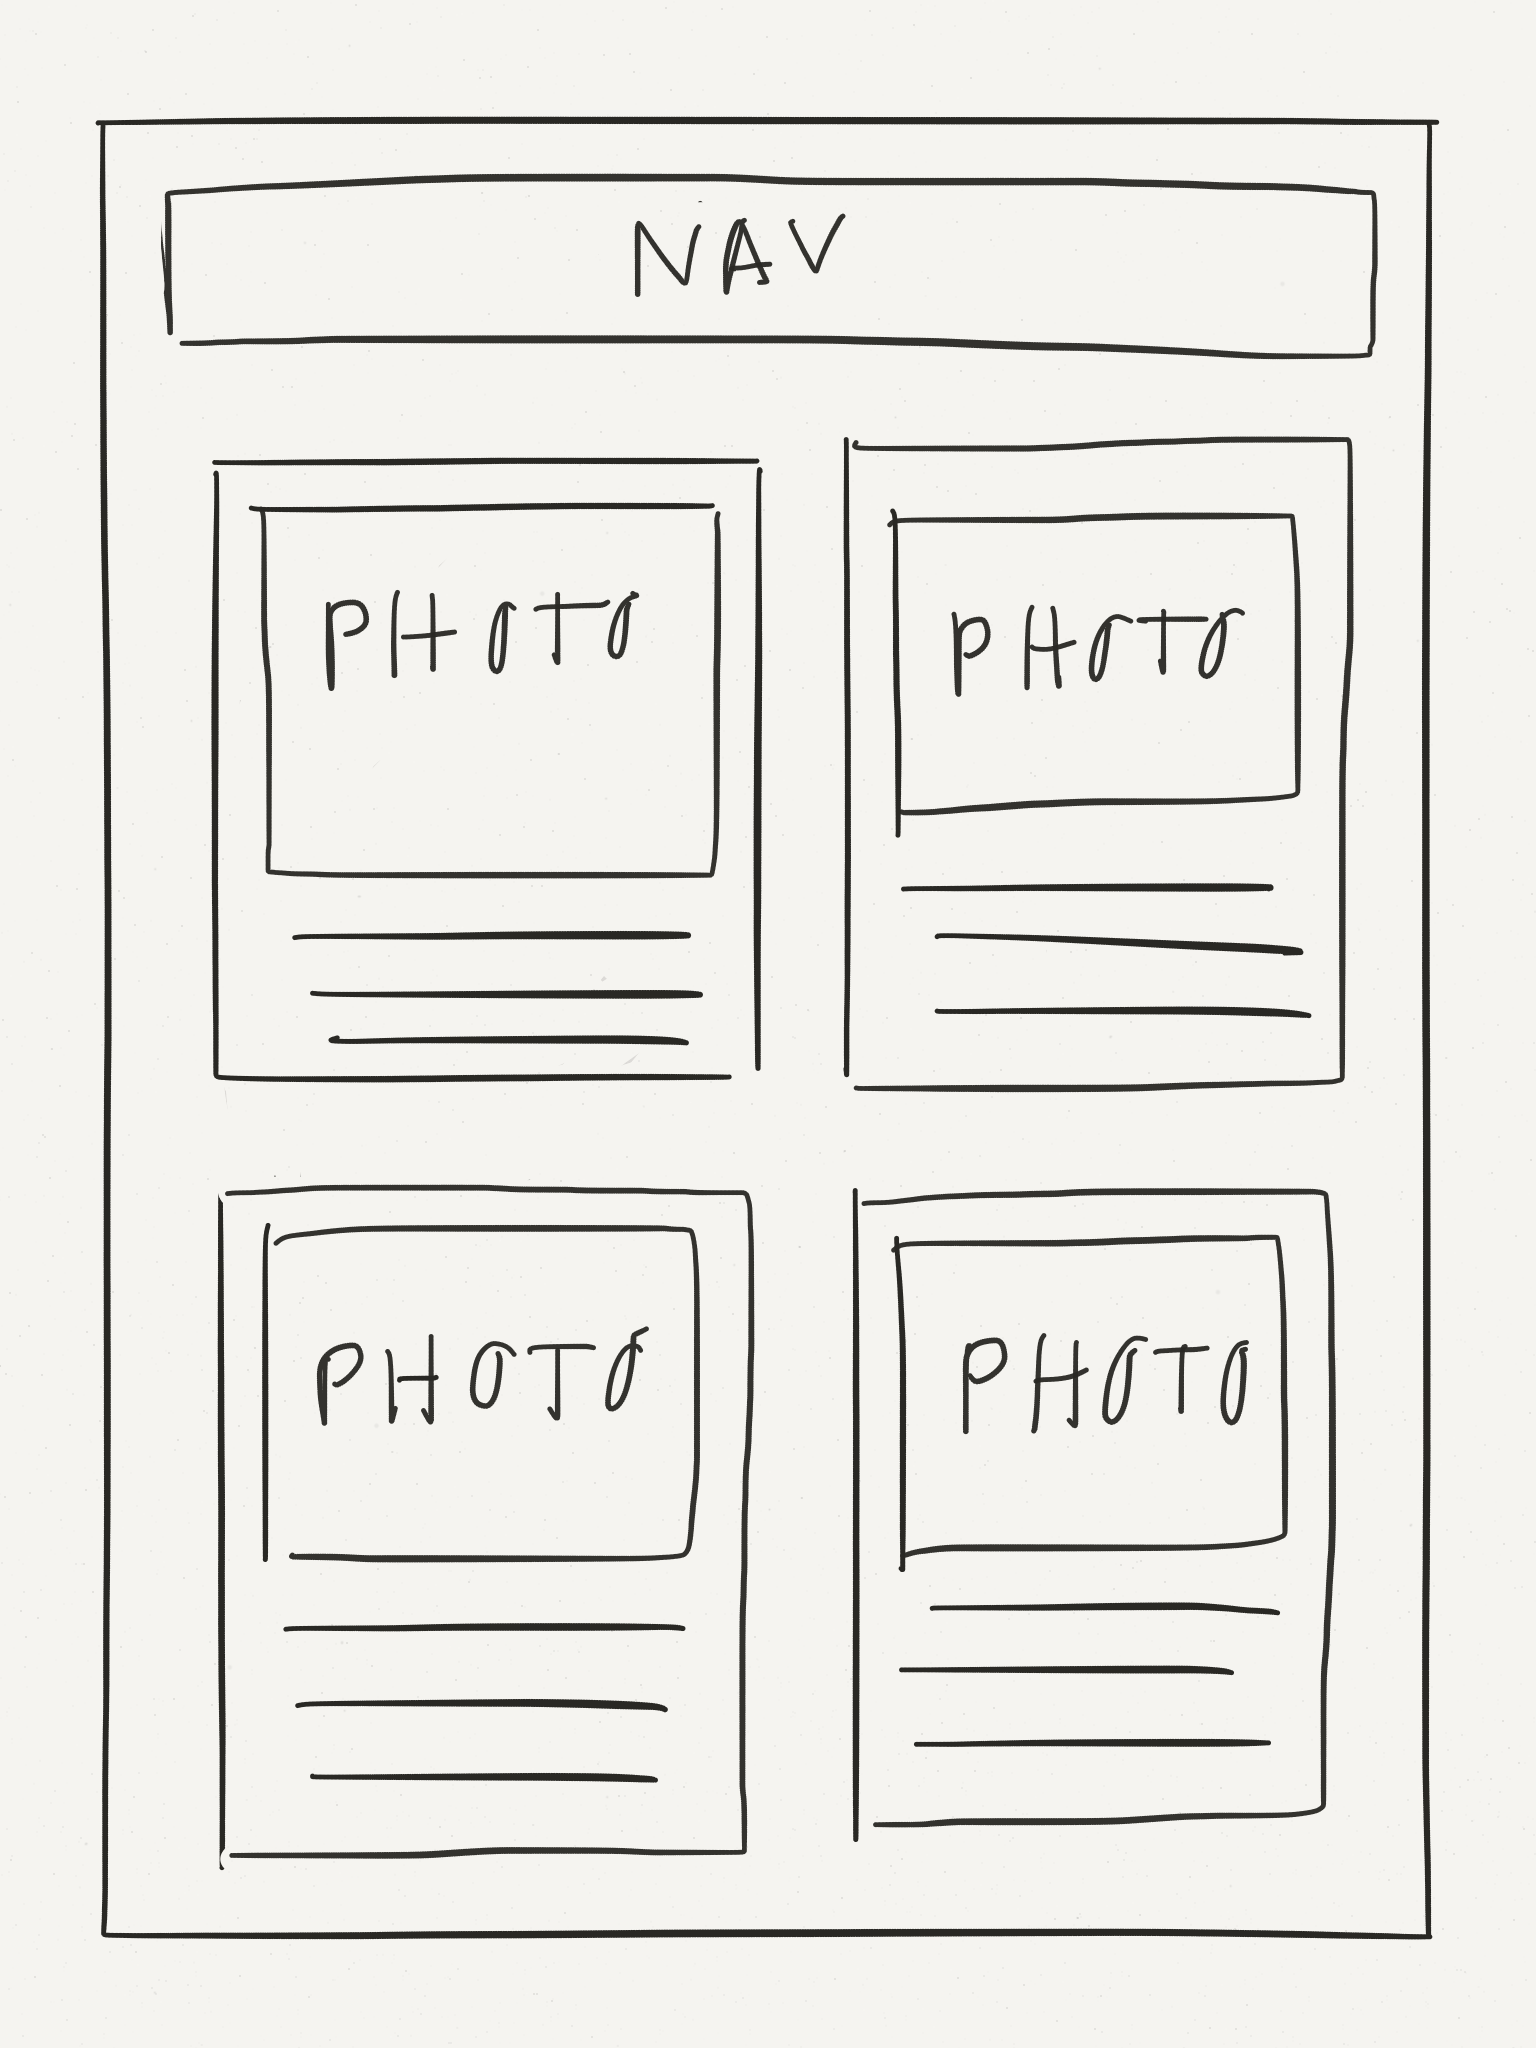 NAV
PHOTO
PHOTO
PHOTO
PHOTO